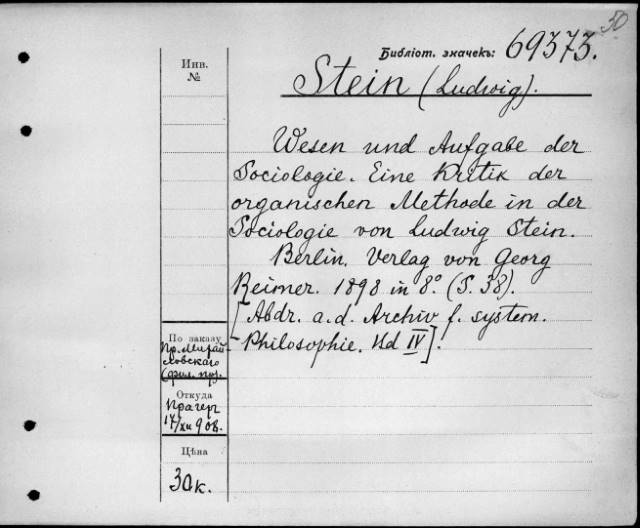 50
Библіот. значекъ: 69373.
Инв.
№
Stein (Ludwig).
Wesen und Aufgabe der
Sociologie. Eine Kritik der
organischen Methode in der
Sociologie von Ludwig Stein.
Berlin. Verlag von Georg
Reimer. 1898 in 8º. (S. 38).
[Abdr. a. d. Archiv f. system.
Philosophie. Bd IV].
По заказу
Пр.
ловскаго
Откуда
Прагер
17/XII 908.
Цѣна
30 к.